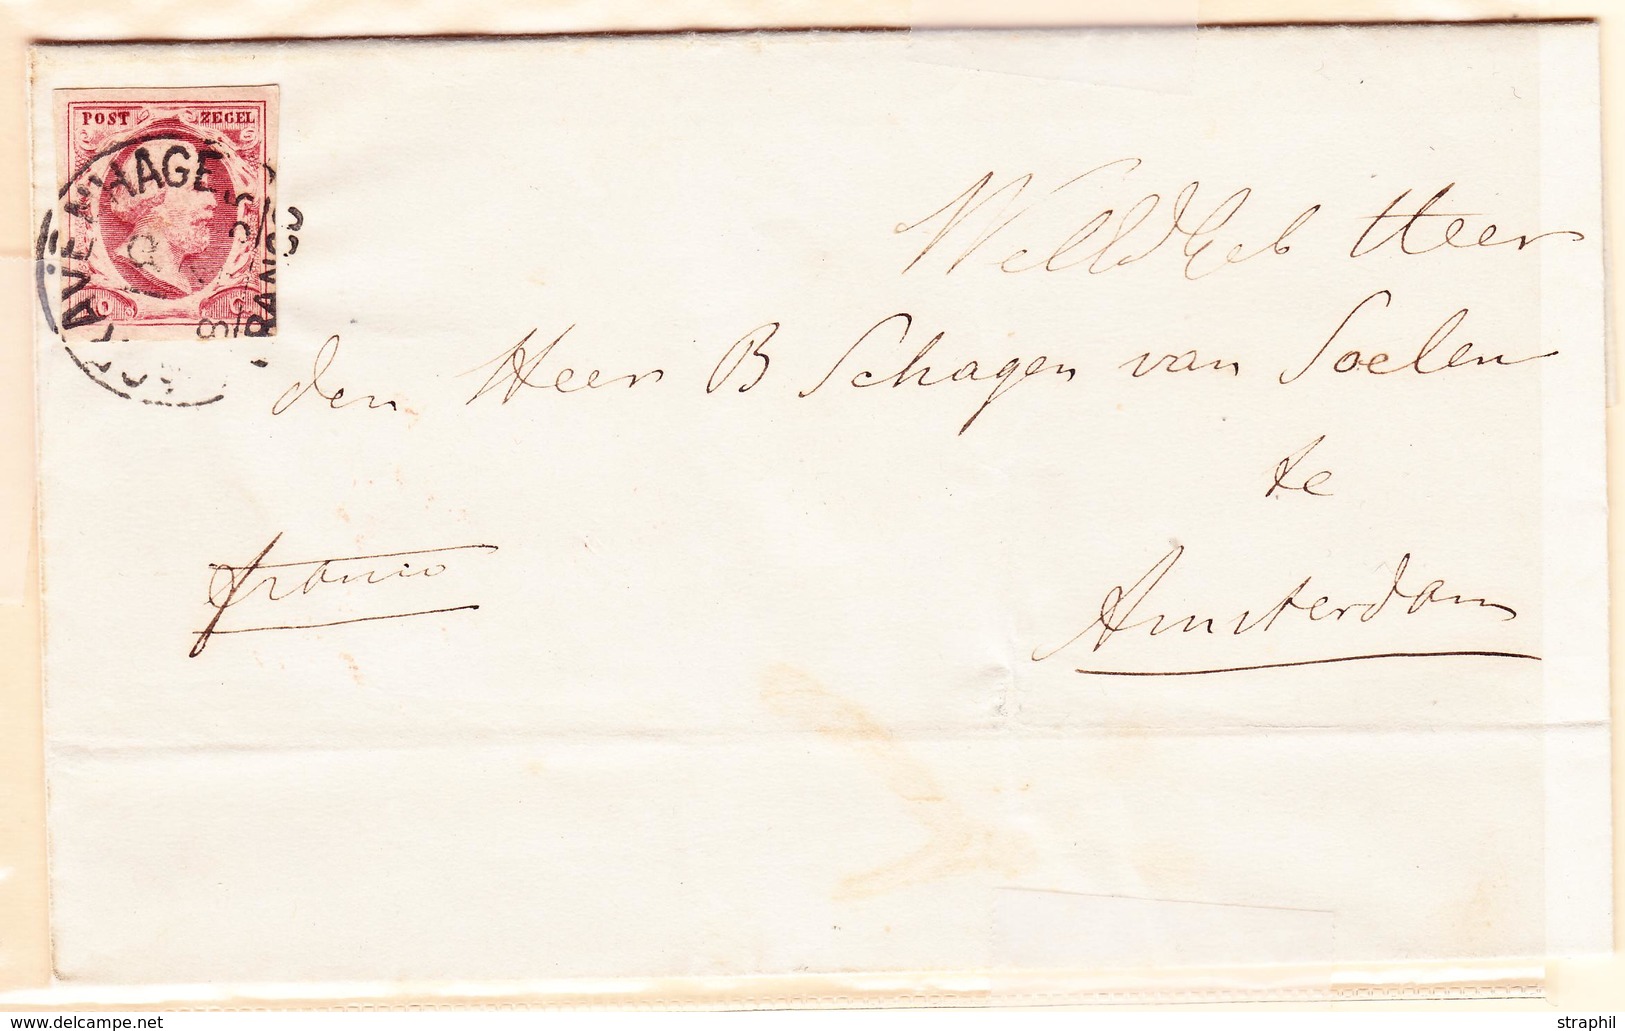 POST ZEGEL
'S GRAVENHAGE
FRANCO
WelEdGeb Heer
den Heer B Schagen van Soelen
te
Amsterdam
franco
© delcampe.net
straphil